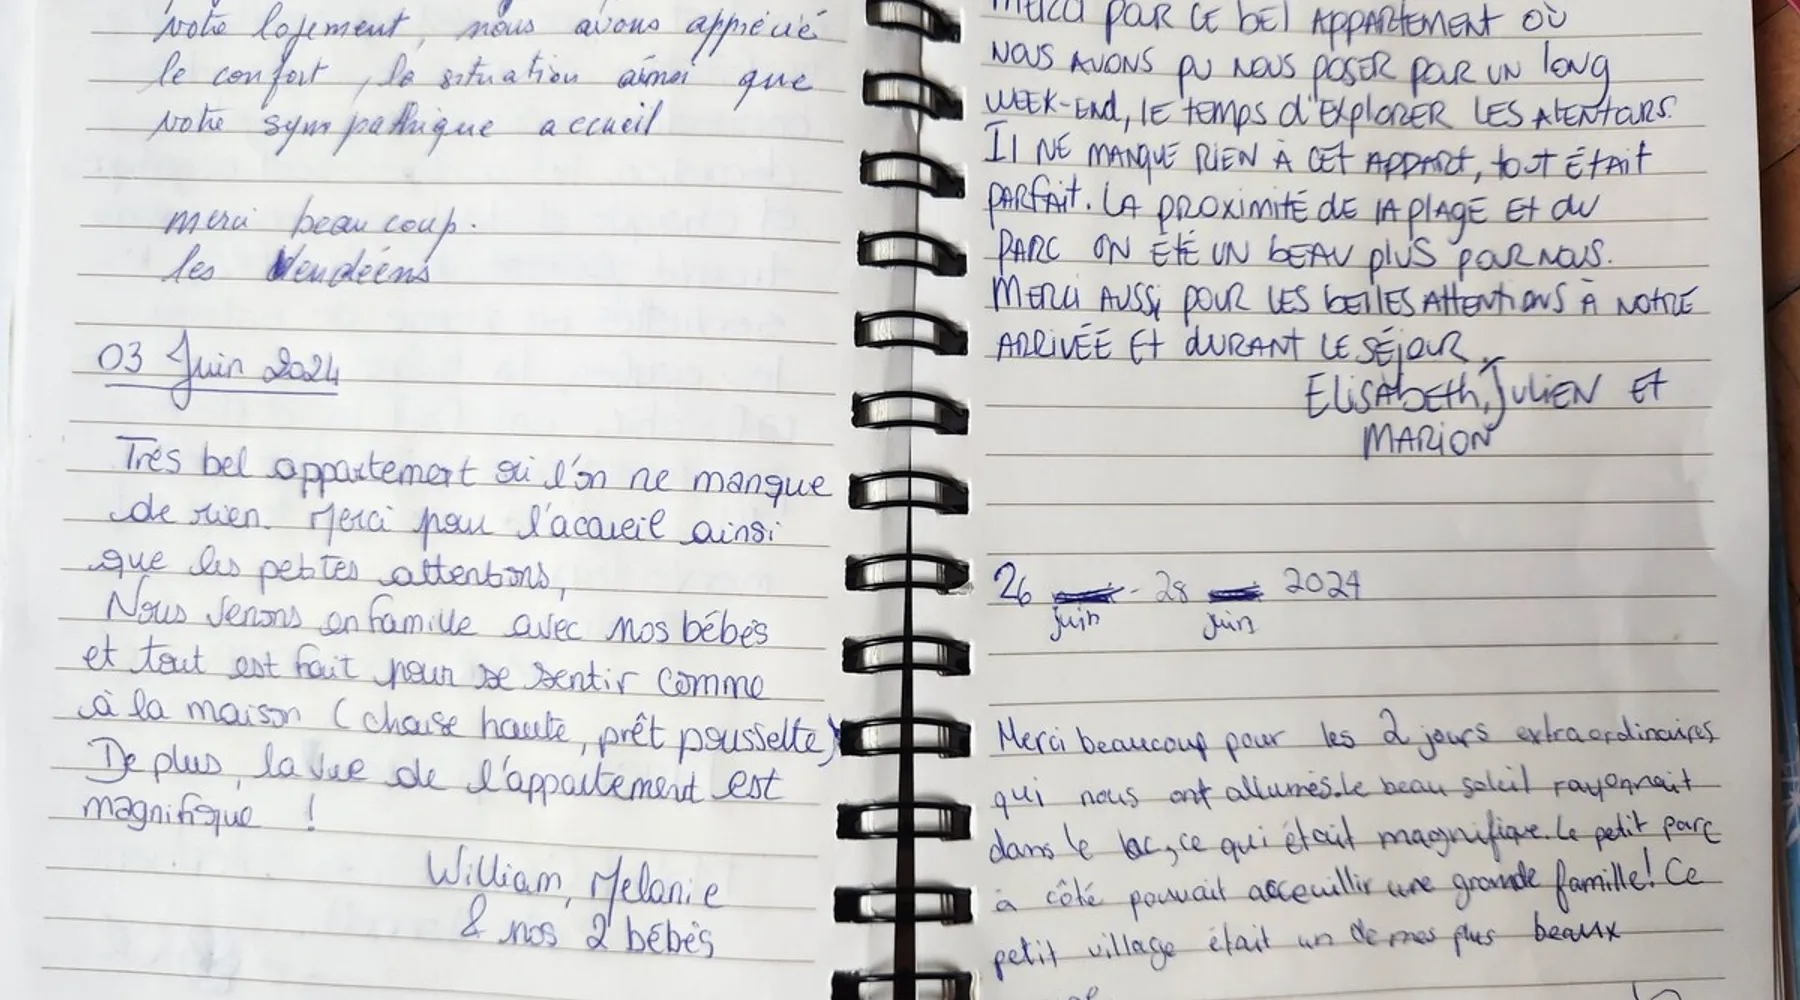 votre logement, nous avons apprécié
le confort, la situation ainsi que
votre sympathique accueil
merci beaucoup.
les Vendéens
03 Juin 2024
Très bel appartement où l'on ne manque
de rien. Merci pour l'accueil ainsi
que les petites attentions,
Nous venons en famille avec nos bébés
et tout est fait pour se sentir comme
à la maison (chaise haute, prêt poussette)
De plus, la vue de l'appartement est
magnifique !
William, Melanie
& nos 2 bébés
Merci par ce bel appartement où
nous avons pu nous poser par un long
week-end, le temps d'explorer les alentours.
Il ne manque rien à cet appart, tout était
parfait. La proximité de la plage et du
parc on été un beau plus par nous.
Merci aussi pour les belles attentions à notre
arrivée et durant le séjour.
Elisabeth, Julien et
Marion
26 juin - 28 juin 2024
Merci beaucoup pour les 2 jours extraordinaires
qui nous ont allumés. Le beau soleil rayonnait
dans le lac, ce qui était magnifique. Le petit parc
à côté pouvait acceuillir une grande famille! Ce
petit village était un de mes plus beaux